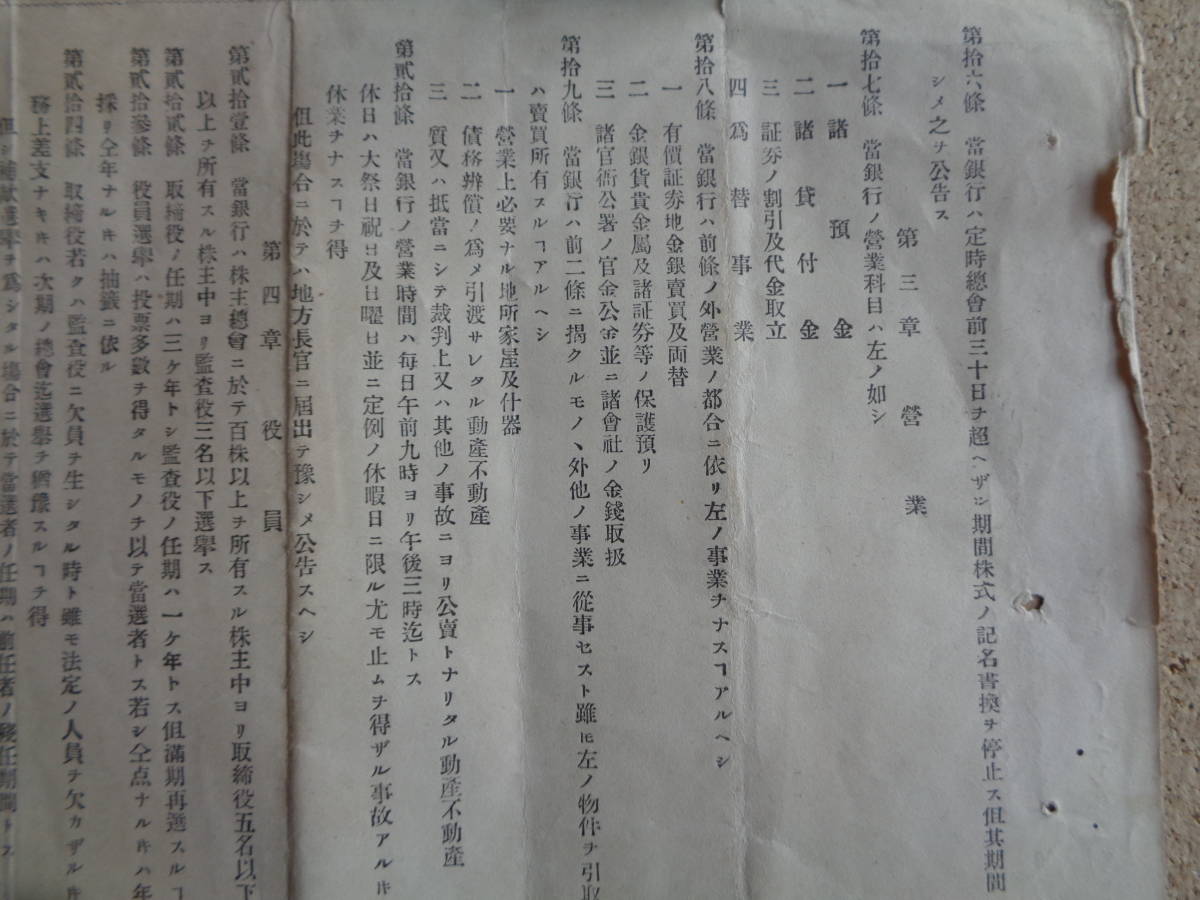 第拾六條　當銀行ハ定時總會前三十日ヲ超ヘザル期間株式ノ記名書換ヲ停止ス但其期間
シメ之ヲ公告ス
第三章　營業
第拾七條　當銀行ノ營業科目ハ左ノ如シ
一　諸預金
二　諸貸付金
三　証券ノ割引及代金取立
四　爲替事業
第拾八條　當銀行ハ前條ノ外營業ノ都合ニ依リ左ノ事業ヲナスヿアルヘシ
一　有價証券地金銀賣買及両替
二　金銀貨貴金屬及諸証券等ノ保護預リ
三　諸官衙公署ノ官金公金並ニ諸會社ノ金錢取扱
第拾九條　當銀行ハ前二條ニ揭クルモノヽ外他ノ事業ニ從事セスト雖𪜈左ノ物件ヲ引取
ハ賣買所有スルヿアルヘシ
一　營業上必要ナル地所家屋及什器
二　債務辨償ノ爲メ引渡サレタル動產不動產
三　質又ハ抵當ニシテ裁判上又ハ其他ノ事故ニヨリ公賣トナリタル動產不動產
第貳拾條　當銀行ノ營業時間ハ毎日午前九時ヨリ午後三時迄トス
休日ハ大祭日祝日及日曜日並ニ定例ノ休暇日ニ限ル尤モ止ムヲ得ザル事故アル𬼀
休業ヲナスヿヲ得
但此塲合ニ於テハ地方長官ニ屆出テ豫シメ公告スヘシ
第四章　役員
第貳拾壹條　當銀行ハ株主總會ニ於テ百株以上ヲ所有スル株主中ヨリ取締役五名以下
以上ヲ所有スル株主中ヨリ監査役三名以下選擧ス
第貳拾貳條　取締役ノ任期ハ三ケ年トシ監査役ノ任期ハ一ケ年トス但滿期再選スルヿ
第貳拾參條　役員選擧ハ投票多數ヲ得タルモノヲ以テ當選者トス若シ仝点ナル𬼀ハ年
採リ仝年ナル𬼀ハ抽籤ニ依ル
第貳拾四條　取締役若クハ監査役ニ欠員ヲ生シタル時ト雖モ法定ノ人員ヲ欠カザル𬼀
務上差支ナキ𬼀ハ次期ノ總會迄選擧ヲ猶豫スルヿヲ得
但シ補欠選擧ヲ爲シタル塲合ニ於テ當選者ノ任期ハ前任者ノ殘任期間トス